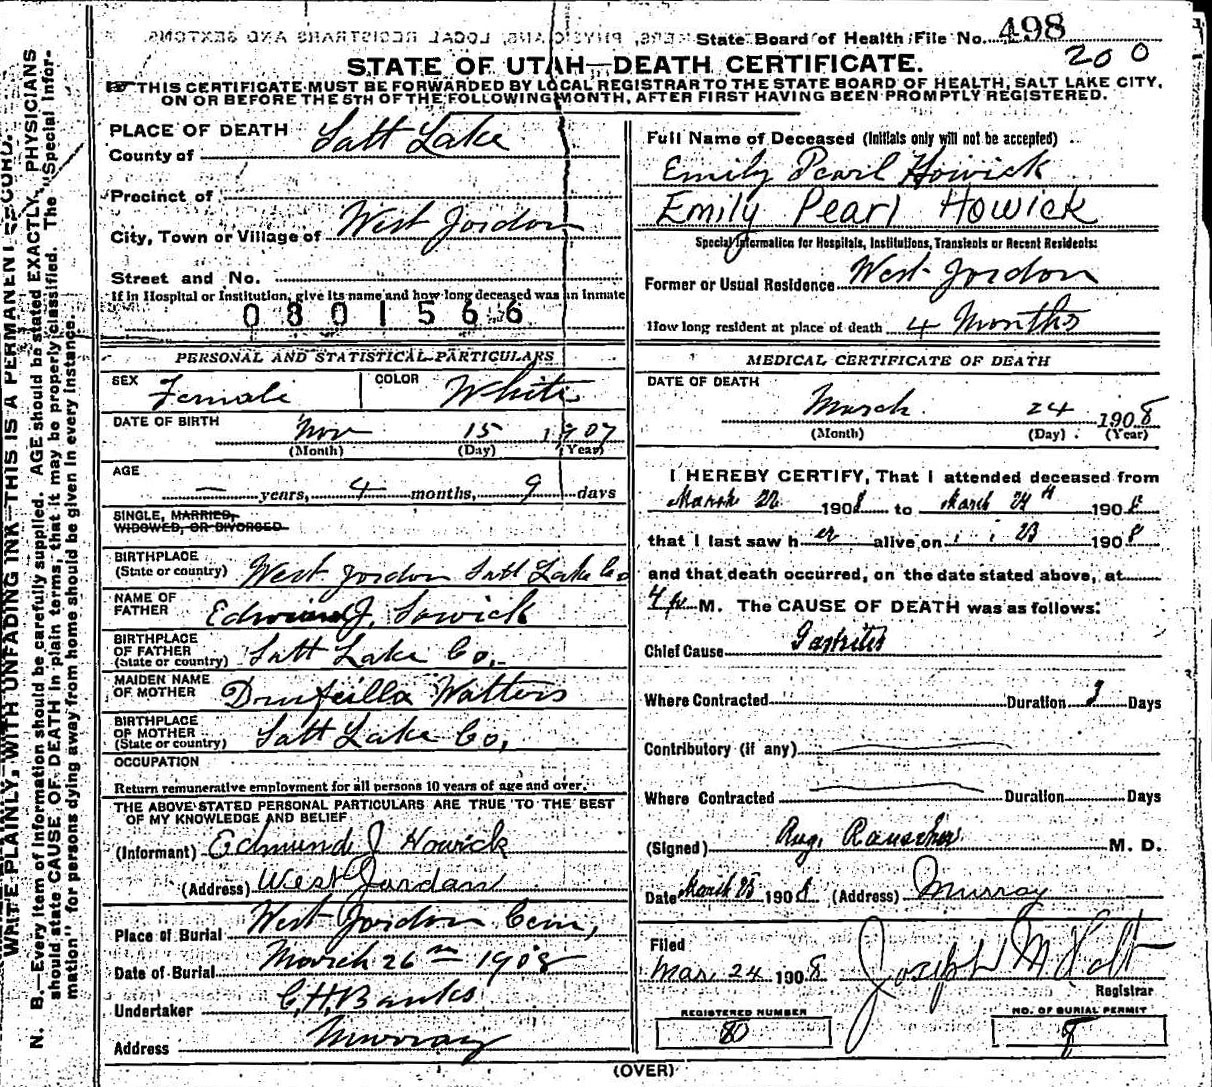 State Board of Health File No. 498
200
STATE OF UTAH—DEATH CERTIFICATE.
THIS CERTIFICATE MUST BE FORWARDED BY LOCAL REGISTRAR TO THE STATE BOARD OF HEALTH, SALT LAKE CITY,
ON OR BEFORE THE 5TH OF THE FOLLOWING MONTH, AFTER FIRST HAVING BEEN PROMPTLY REGISTERED.
WRITE PLAINLY, WITH UNFADING INK—THIS IS A PERMANENT RECORD.
N. B.—Every item of information should be carefully supplied. AGE should be stated EXACTLY. PHYSICIANS
should state CAUSE OF DEATH in plain terms, that it may be properly classified. The "Special Infor-
mation" for persons dying away from home should be given in every instance.
PLACE OF DEATH
County of Salt Lake
Precinct of
City, Town or Village of West Jordon
Street and No.
If in Hospital or Institution, give its name and how long deceased was an inmate
0801566
PERSONAL AND STATISTICAL PARTICULARS
SEX Female COLOR White
DATE OF BIRTH Nov 15 1907
(Month) (Day) (Year)
AGE
— years, 4 months, 9 days
SINGLE, MARRIED,
WIDOWED, OR DIVORCED
BIRTHPLACE
(State or country) West Jordon Salt Lake Co
NAME OF
FATHER J. Howick
BIRTHPLACE
OF FATHER
(State or country) Salt Lake Co.
MAIDEN NAME
OF MOTHER Drufcilla Watters
BIRTHPLACE
OF MOTHER
(State or country) Salt Lake Co,
OCCUPATION
Return remunerative employment for all persons 10 years of age and over.
THE ABOVE STATED PERSONAL PARTICULARS ARE TRUE TO THE BEST
OF MY KNOWLEDGE AND BELIEF
(Informant) Edmund J Howick
(Address) West Jordan
Place of Burial West Jordon Cem,
Date of Burial March 26th 1908
Undertaker C.H. Banks
Address Murray
Full Name of Deceased (Initials only will not be accepted)
Emily Pearl Howick
Emily Pearl Howick
Special Information for Hospitals, Institutions, Transients or Recent Residents:
Former or Usual Residence West Jordon
How long resident at place of death 4 Months
MEDICAL CERTIFICATE OF DEATH
DATE OF DEATH
March 24 1908
(Month) (Day) (Year)
I HEREBY CERTIFY, That I attended deceased from
March 22 1908 to March 24th 1908
that I last saw her alive on " " 23 1908
and that death occurred, on the date stated above, at
4 p M. The CAUSE OF DEATH was as follows:
Chief Cause Gastritis
Where Contracted Duration 3 Days
Contributory (if any)
Where Contracted Duration Days
(Signed) Aug. Rauscher M. D.
Date March 25 1908 (Address) Murray
Filed
Mar 24 1908 Joseph M Holt
Registrar
REGISTERED NUMBER
80
NO. OF BURIAL PERMIT
8
(OVER)